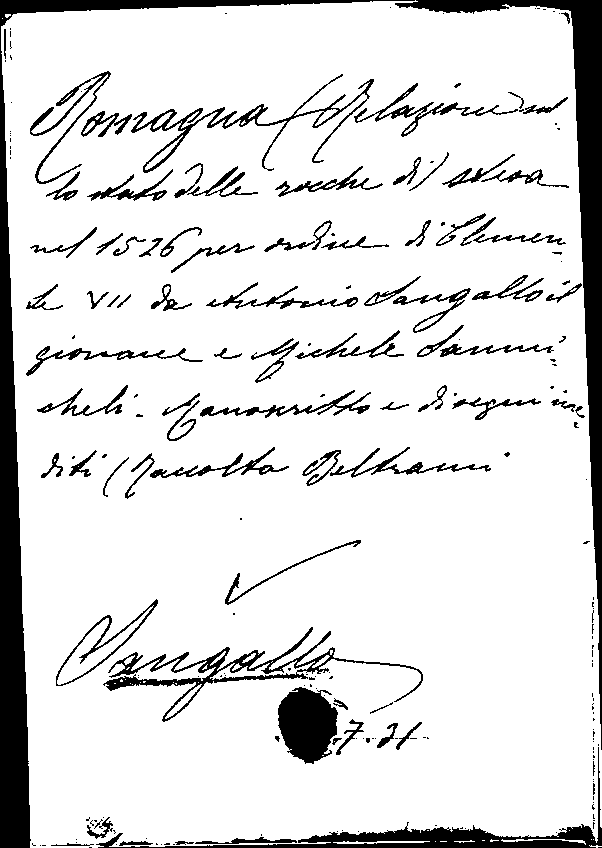 Romagna (Relazione sul-
lo stato delle rocche di) stesa
nel 1526 per ordine di Clemen-
te VII da Antonio Sangallo il
giovane e Michele Sanmi-
cheli - Manoscritto e disegni ine-
diti (Raccolta Beltrami
Sangallo
7.31